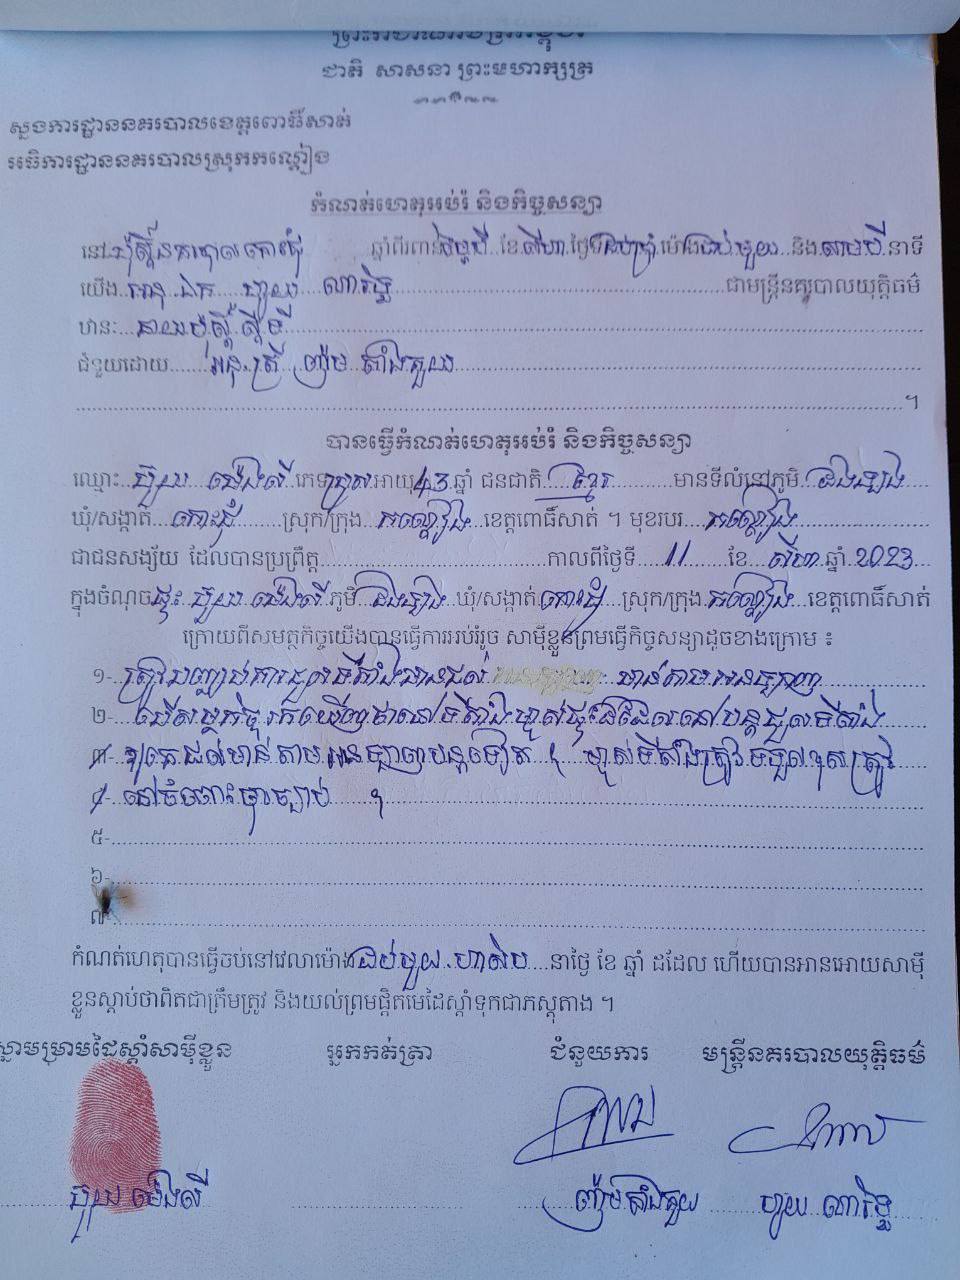 ជាតិ សាសនា ព្រះមហាក្សត្រ
ស្នងការដ្ឋាននគរបាលខេត្តពោធិ៍សាត់
អធិការដ្ឋាននគរបាលស្រុកកណ្ដៀង
កំណត់ហេតុអប់រំ និងកិច្ចសន្យា
នៅ ប៉ុស្តិ៍នគរបាលកោះជុំ ឆ្នាំពីរពាន់ម្ភៃបី ខែ សីហា ថ្ងៃទី ម៉ោង ដប់មួយ និង សាមបី នាទី
យើង អនុ ឯក ណារិទ្ធ ជាមន្ត្រីនគរបាលយុត្តិធម៌
ឋានៈ នាយប៉ុស្តិ៍ ស្តីទី
ជំនួយដោយ អនុ.ត្រី ញ៉ម តាំងគួយ
បានធ្វើកំណត់ហេតុអប់រំ និងកិច្ចសន្យា
ឈ្មោះ ម៉េងលី ភេទ ប្រុស អាយុ 43 ឆ្នាំ ជនជាតិ ខ្មែរ មានទីលំនៅភូមិ
ឃុំ/សង្កាត់ កោះជុំ ស្រុក/ក្រុង កណ្ដៀង ខេត្តពោធិ៍សាត់ ។ មុខរបរ
ជាជនសង្ស័យ ដែលបានប្រព្រឹត្ត កាលពីថ្ងៃទី 11 ខែ សីហា ឆ្នាំ 2023
ក្នុងចំណុចផ្ទះ ម៉េងលី ភូមិ ឃុំ/សង្កាត់ កោះជុំ ស្រុក/ក្រុង កណ្ដៀង ខេត្តពោធិ៍សាត់
ក្រោយពីសមត្ថកិច្ចយើងបានធ្វើការអប់រំរួច សាម៉ីខ្លួនព្រមធ្វើកិច្ចសន្យាដូចខាងក្រោម ៖
១- ត្រូវបញ្ឈប់ការជួលទីតាំងជាន មាន់តាមអនឡាញ
២- បើសមត្ថកិច្ចរកឃើញថានៅទីតាំងម្ចាស់ផ្ទះដដែលនៅបន្តជួលទីតាំង
៣- ឱ្យគេជល់មាន់តាមអនឡាញបន្តទៀត ។ ម្ចាស់ទីតាំងត្រូវទទួលខុសត្រូវ
៤- នៅចំពោះមុខច្បាប់ ។
៥-
៦-
៧-
កំណត់ហេតុបានធ្វើចប់នៅវេលាម៉ោង ដប់មួយ ហាសិប នាថ្ងៃ ខែ ឆ្នាំ ដដែល ហើយបានអានអោយសាម៉ី
ខ្លួនស្តាប់ថាពិតជាត្រឹមត្រូវ និងយល់ព្រមផ្ដិតមេដៃស្ដាំទុកជាភស្តុតាង ។
ស្នាមម្រាមដៃស្ដាំសាម៉ីខ្លួន អ្នកកត់ត្រា ជំនួយការ មន្ត្រីនគរបាលយុត្តិធម៌
ម៉េងលី ញ៉មតាំងគួយ ណារិទ្ធ